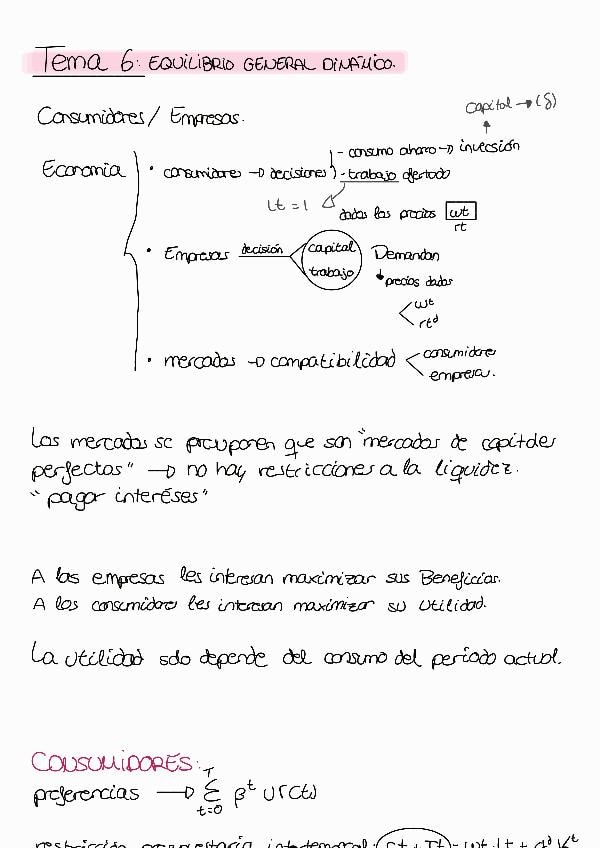 Tema 6: EQUILIBRIO GENERAL DINÁMICO.
capital → (δ)
Consumidores / Empresas.
- consumo ahorro → inversión
Economia
• consumidores → decisiones
- trabajo ofertado
Lt = 1
dados los precios wt
rt
• Empresas decisión capital
trabajo
Demandan
precios dados
wt
rtd
• mercados → compatibilidad
consumidores
empresas.
Los mercados se presuponen que son "mercados de capitales
perfectos" → no hay restricciones a la liquidez.
"pagar interéses"
A las empresas les interesan maximizar sus Beneficios.
A los consumidores les interesan maximizar su utilidad.
La utilidad solo depende del consumo del periodo actual.
CONSUMIDORES:
preferencias → T Σ t=0 βt U(ct)